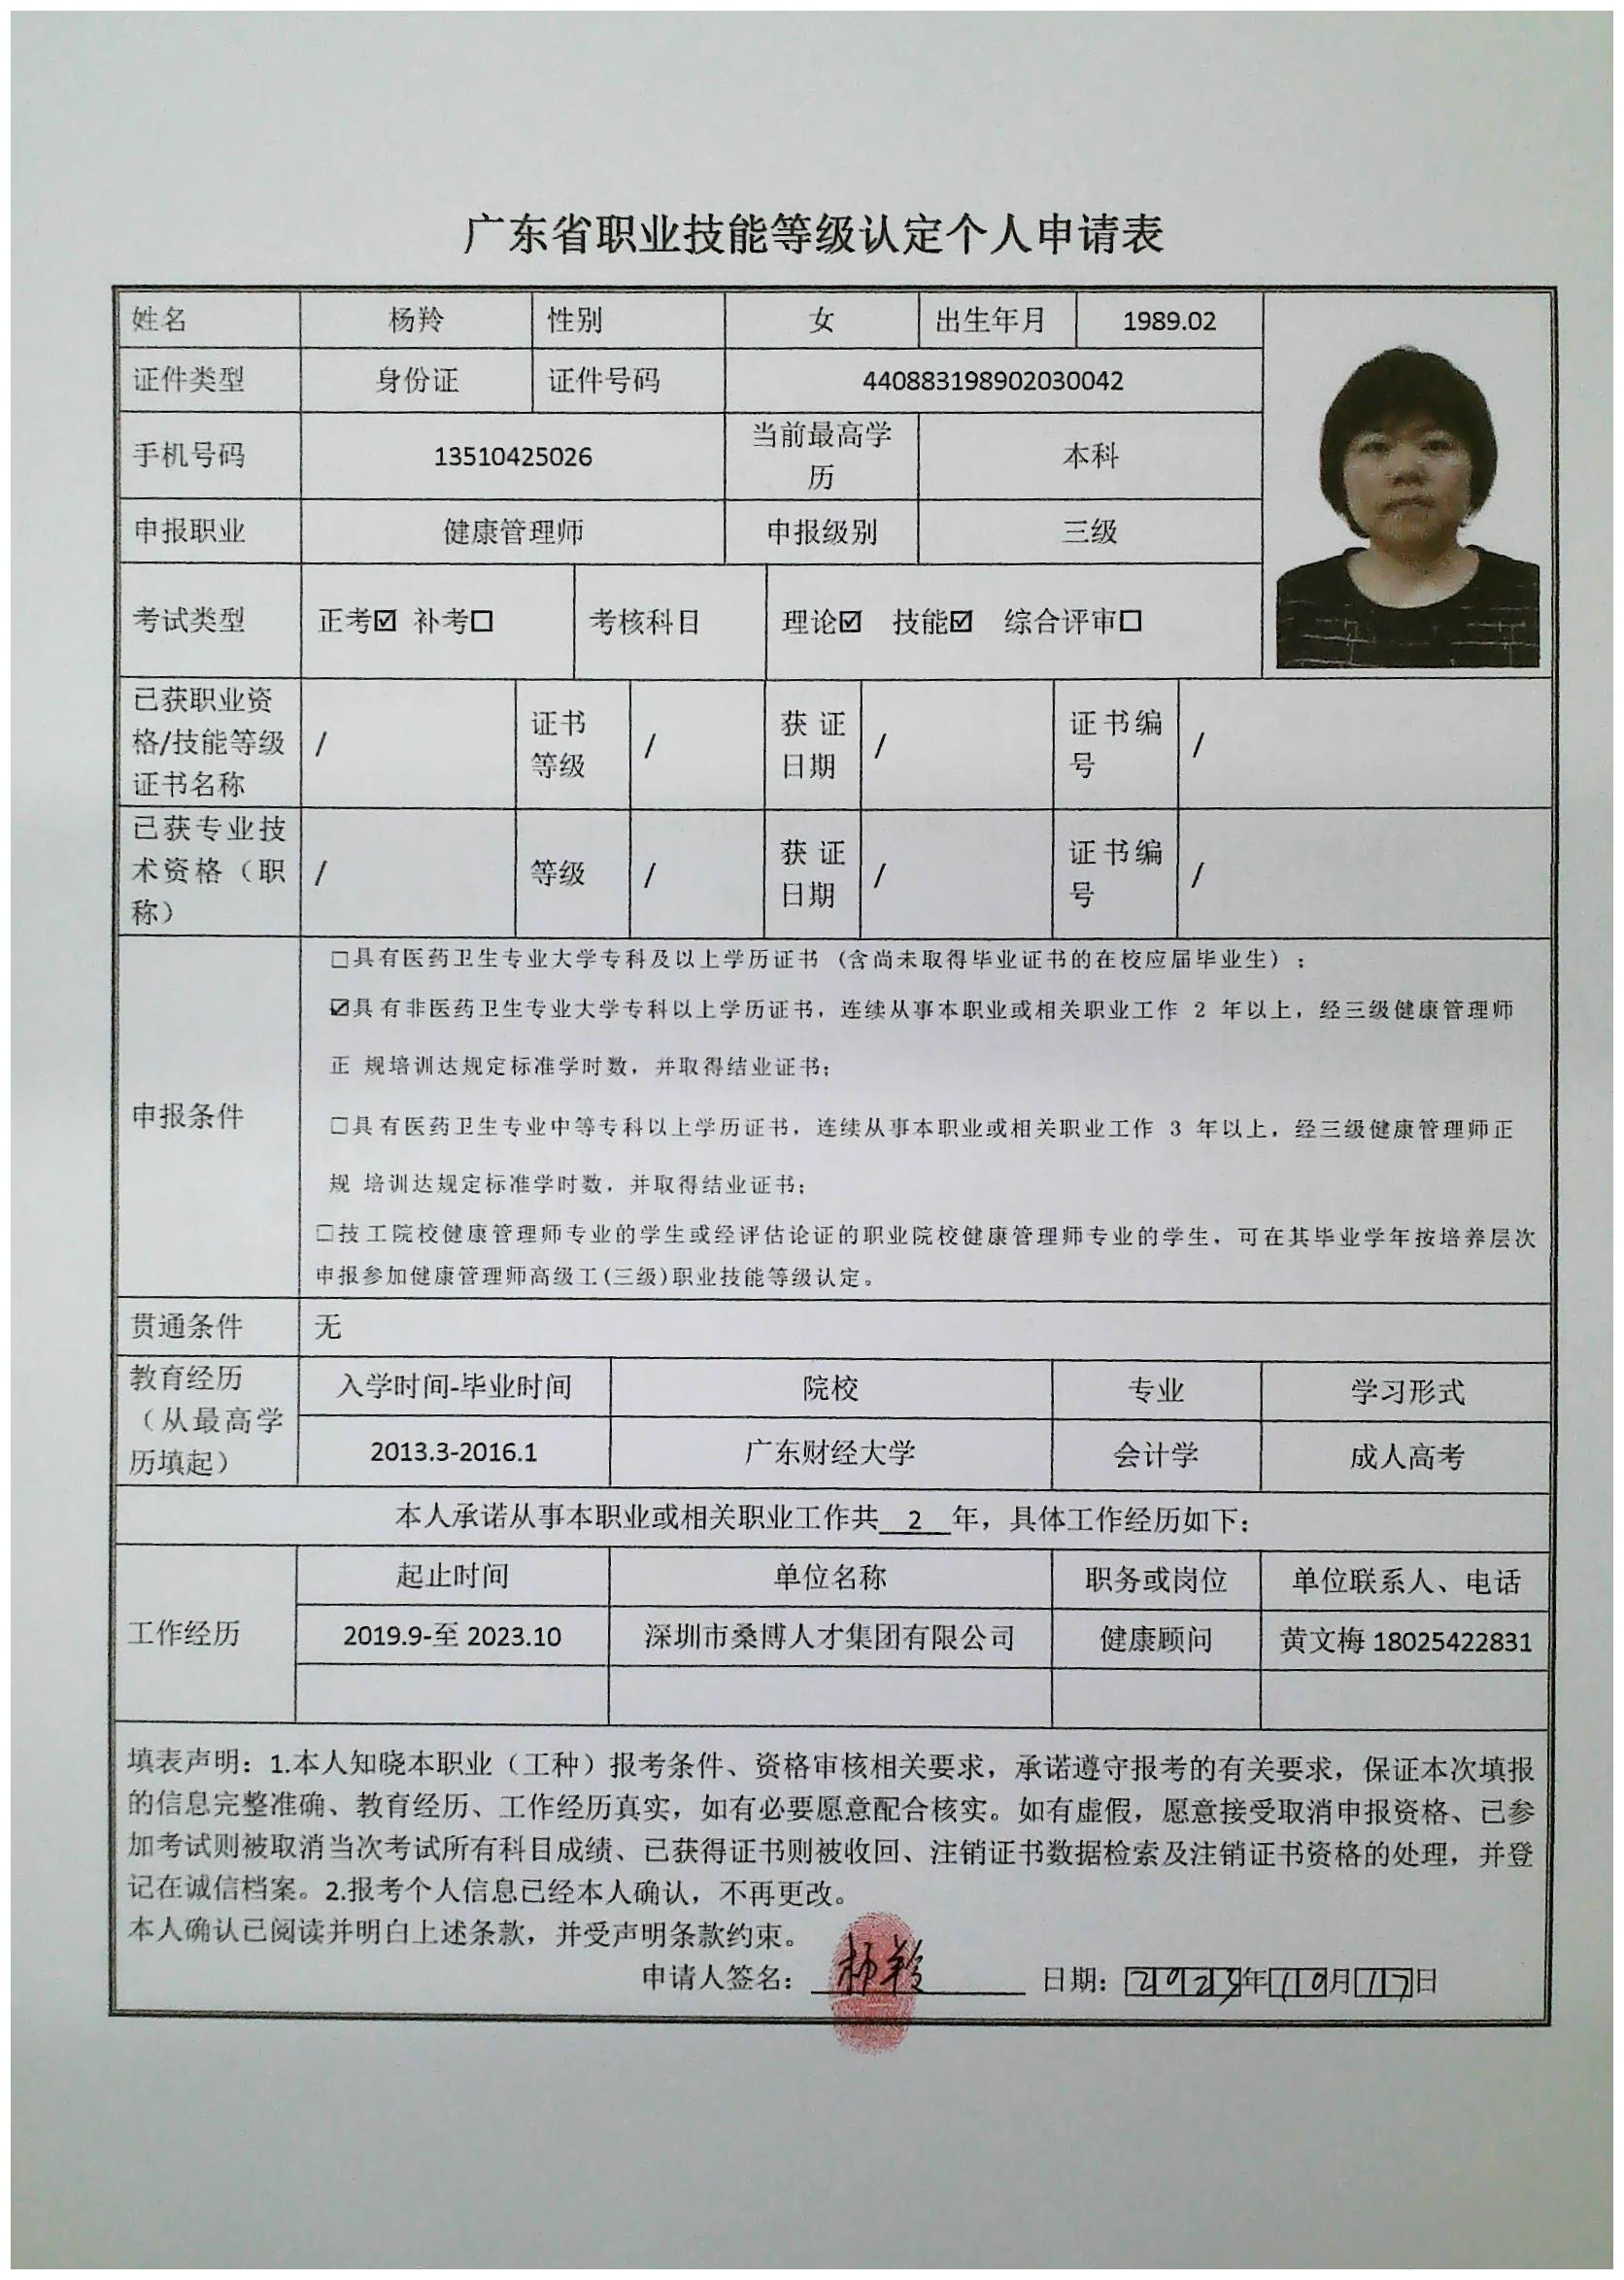 广东省职业技能等级认定个人申请表
姓名 杨羚 性别 女 出生年月 1989.02
证件类型 身份证 证件号码 440883198902030042
手机号码 13510425026 当前最高学历 本科
申报职业 健康管理师 申报级别 三级
考试类型 正考☑ 补考☐ 考核科目 理论☑ 技能☑ 综合评审☐
已获职业资格/技能等级证书名称 / 证书等级 / 获证日期 / 证书编号 /
已获专业技术资格（职称） / 等级 / 获证日期 / 证书编号 /
申报条件
☐具有医药卫生专业大学专科及以上学历证书（含尚未取得毕业证书的在校应届毕业生）;
☑具有非医药卫生专业大学专科以上学历证书，连续从事本职业或相关职业工作 2 年以上，经三级健康管理师
正 规培训达规定标准学时数，并取得结业证书;
☐具有医药卫生专业中等专科以上学历证书，连续从事本职业或相关职业工作 3 年以上，经三级健康管理师正
规 培训达规定标准学时数，并取得结业证书;
☐技工院校健康管理师专业的学生或经评估论证的职业院校健康管理师专业的学生，可在其毕业学年按培养层次
申报参加健康管理师高级工(三级)职业技能等级认定。
贯通条件 无
教育经历（从最高学历填起） 入学时间-毕业时间 院校 专业 学习形式
2013.3-2016.1 广东财经大学 会计学 成人高考
本人承诺从事本职业或相关职业工作共 2 年，具体工作经历如下：
工作经历 起止时间 单位名称 职务或岗位 单位联系人、电话
2019.9-至 2023.10 深圳市桑博人才集团有限公司 健康顾问 黄文梅 18025422831
填表声明：1.本人知晓本职业（工种）报考条件、资格审核相关要求，承诺遵守报考的有关要求，保证本次填报
的信息完整准确、教育经历、工作经历真实，如有必要愿意配合核实。如有虚假，愿意接受取消申报资格、已参
加考试则被取消当次考试所有科目成绩、已获得证书则被收回、注销证书数据检索及注销证书资格的处理，并登
记在诚信档案。2.报考个人信息已经本人确认，不再更改。
本人确认已阅读并明白上述条款，并受声明条款约束。
申请人签名： 杨羚 日期：2023年10月17日